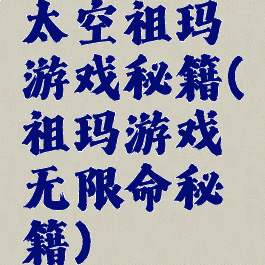 太空祖玛
游戏秘籍(
祖玛游戏
无限命秘
籍)